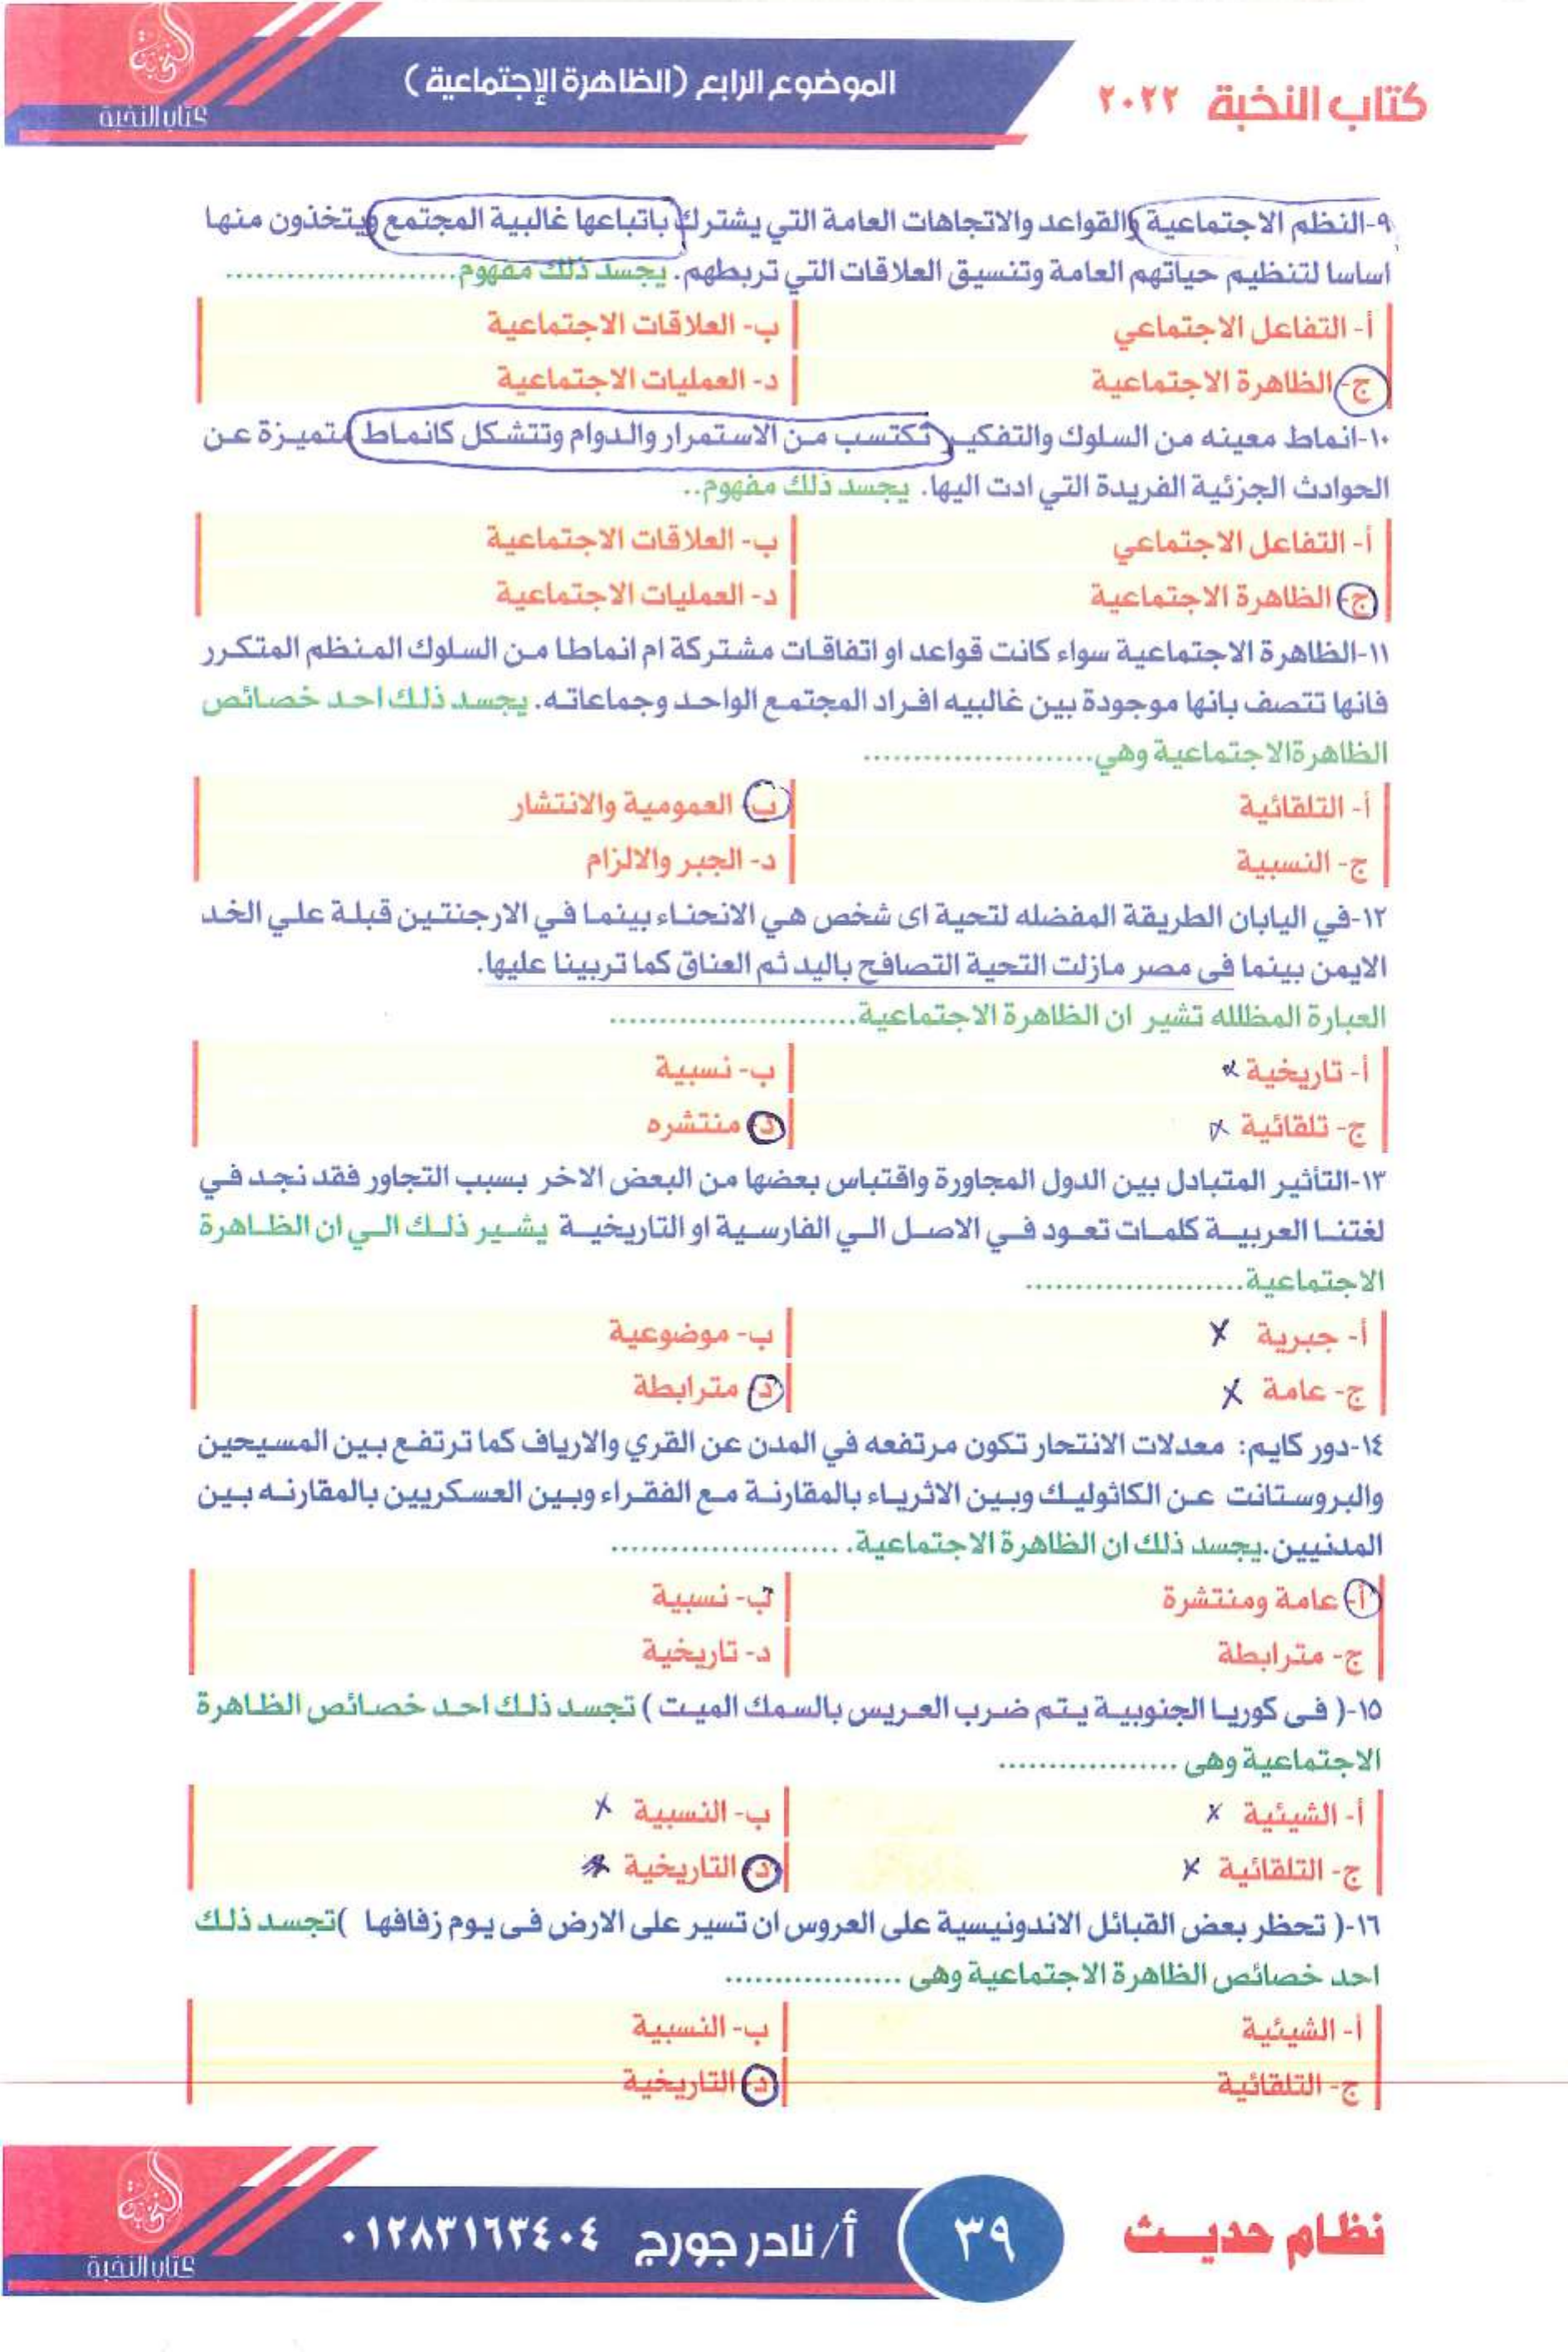 كتاب النخبة ٢٠٢٢
الموضوع الرابع (الظاهرة الإجتماعية)
كتاب النخبة
٩-النظم الاجتماعية والقواعد والاتجاهات العامة التي يشترك باتباعها غالبية المجتمع ويتخذون منها
اساسا لتنظيم حياتهم العامة وتنسيق العلاقات التي تربطهم. يجسد ذلك مفهوم......................
أ- التفاعل الاجتماعي
ب- العلاقات الاجتماعية
ج- الظاهرة الاجتماعية
د- العمليات الاجتماعية
١٠-انماط معينه من السلوك والتفكير تكتسب من الاستمرار والدوام وتتشكل كانماط متميزة عن
الحوادث الجزئية الفريدة التي ادت اليها. يجسد ذلك مفهوم..
أ- التفاعل الاجتماعي
ب- العلاقات الاجتماعية
ج- الظاهرة الاجتماعية
د- العمليات الاجتماعية
١١-الظاهرة الاجتماعية سواء كانت قواعد او اتفاقات مشتركة ام انماطا من السلوك المنظم المتكرر
فانها تتصف بانها موجودة بين غالبيه افراد المجتمع الواحد وجماعاته. يجسد ذلك احد خصائص
الظاهرةالاجتماعية وهي......................
أ- التلقائية
ب- العمومية والانتشار
ج- النسبية
د- الجبر والالزام
١٢-في اليابان الطريقة المفضله لتحية اى شخص هي الانحناء بينما في الارجنتين قبلة علي الخد
الايمن بينما فى مصر مازلت التحية التصافح باليد ثم العناق كما تربينا عليها.
العبارة المظلله تشير ان الظاهرة الاجتماعية........................
أ- تاريخية
ب- نسبية
ج- تلقائية
د- منتشره
١٣-التأثير المتبادل بين الدول المجاورة واقتباس بعضها من البعض الاخر بسبب التجاور فقد نجد في
لغتنا العربية كلمات تعود في الاصل الي الفارسية او التاريخية يشير ذلك الي ان الظاهرة
الاجتماعية......................
أ- جبرية
ب- موضوعية
ج- عامة
د- مترابطة
١٤-دور كايم: معدلات الانتحار تكون مرتفعه في المدن عن القري والارياف كما ترتفع بين المسيحين
والبروستانت عن الكاثوليك وبين الاثرياء بالمقارنة مع الفقراء وبين العسكريين بالمقارنه بين
المدنيين.يجسد ذلك ان الظاهرة الاجتماعية. ......................
أ- عامة ومنتشرة
ب- نسبية
ج- مترابطة
د- تاريخية
١٥-( فى كوريا الجنوبية يتم ضرب العريس بالسمك الميت ) تجسد ذلك احد خصائص الظاهرة
الاجتماعية وهى ..................
أ- الشيئية
ب- النسبية
ج- التلقائية
د- التاريخية
١٦-( تحظر بعض القبائل الاندونيسية على العروس ان تسير على الارض فى يوم زفافها )تجسد ذلك
احد خصائص الظاهرة الاجتماعية وهى ..................
أ- الشيئية
ب- النسبية
ج- التلقائية
د- التاريخية
نظام حديث
٣٩
أ/ نادر جورج ٠١٢٨٣١٦٣٤٠٤
كتاب النخبة